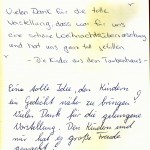 Vielen Dank für die tolle
Vorstellung, dass war für uns
eine schöne Weihnachtsüberraschung
und hat uns ganz toll gefallen
- Die Kinder aus dem Tannenhaus -
Eine tolle Idee, den Kindern
ein Gedicht näher zu bringen!
Vielen Dank für die gelungene
Vorstellung. Den Kindern und
mir hat es große Freude
gemacht.